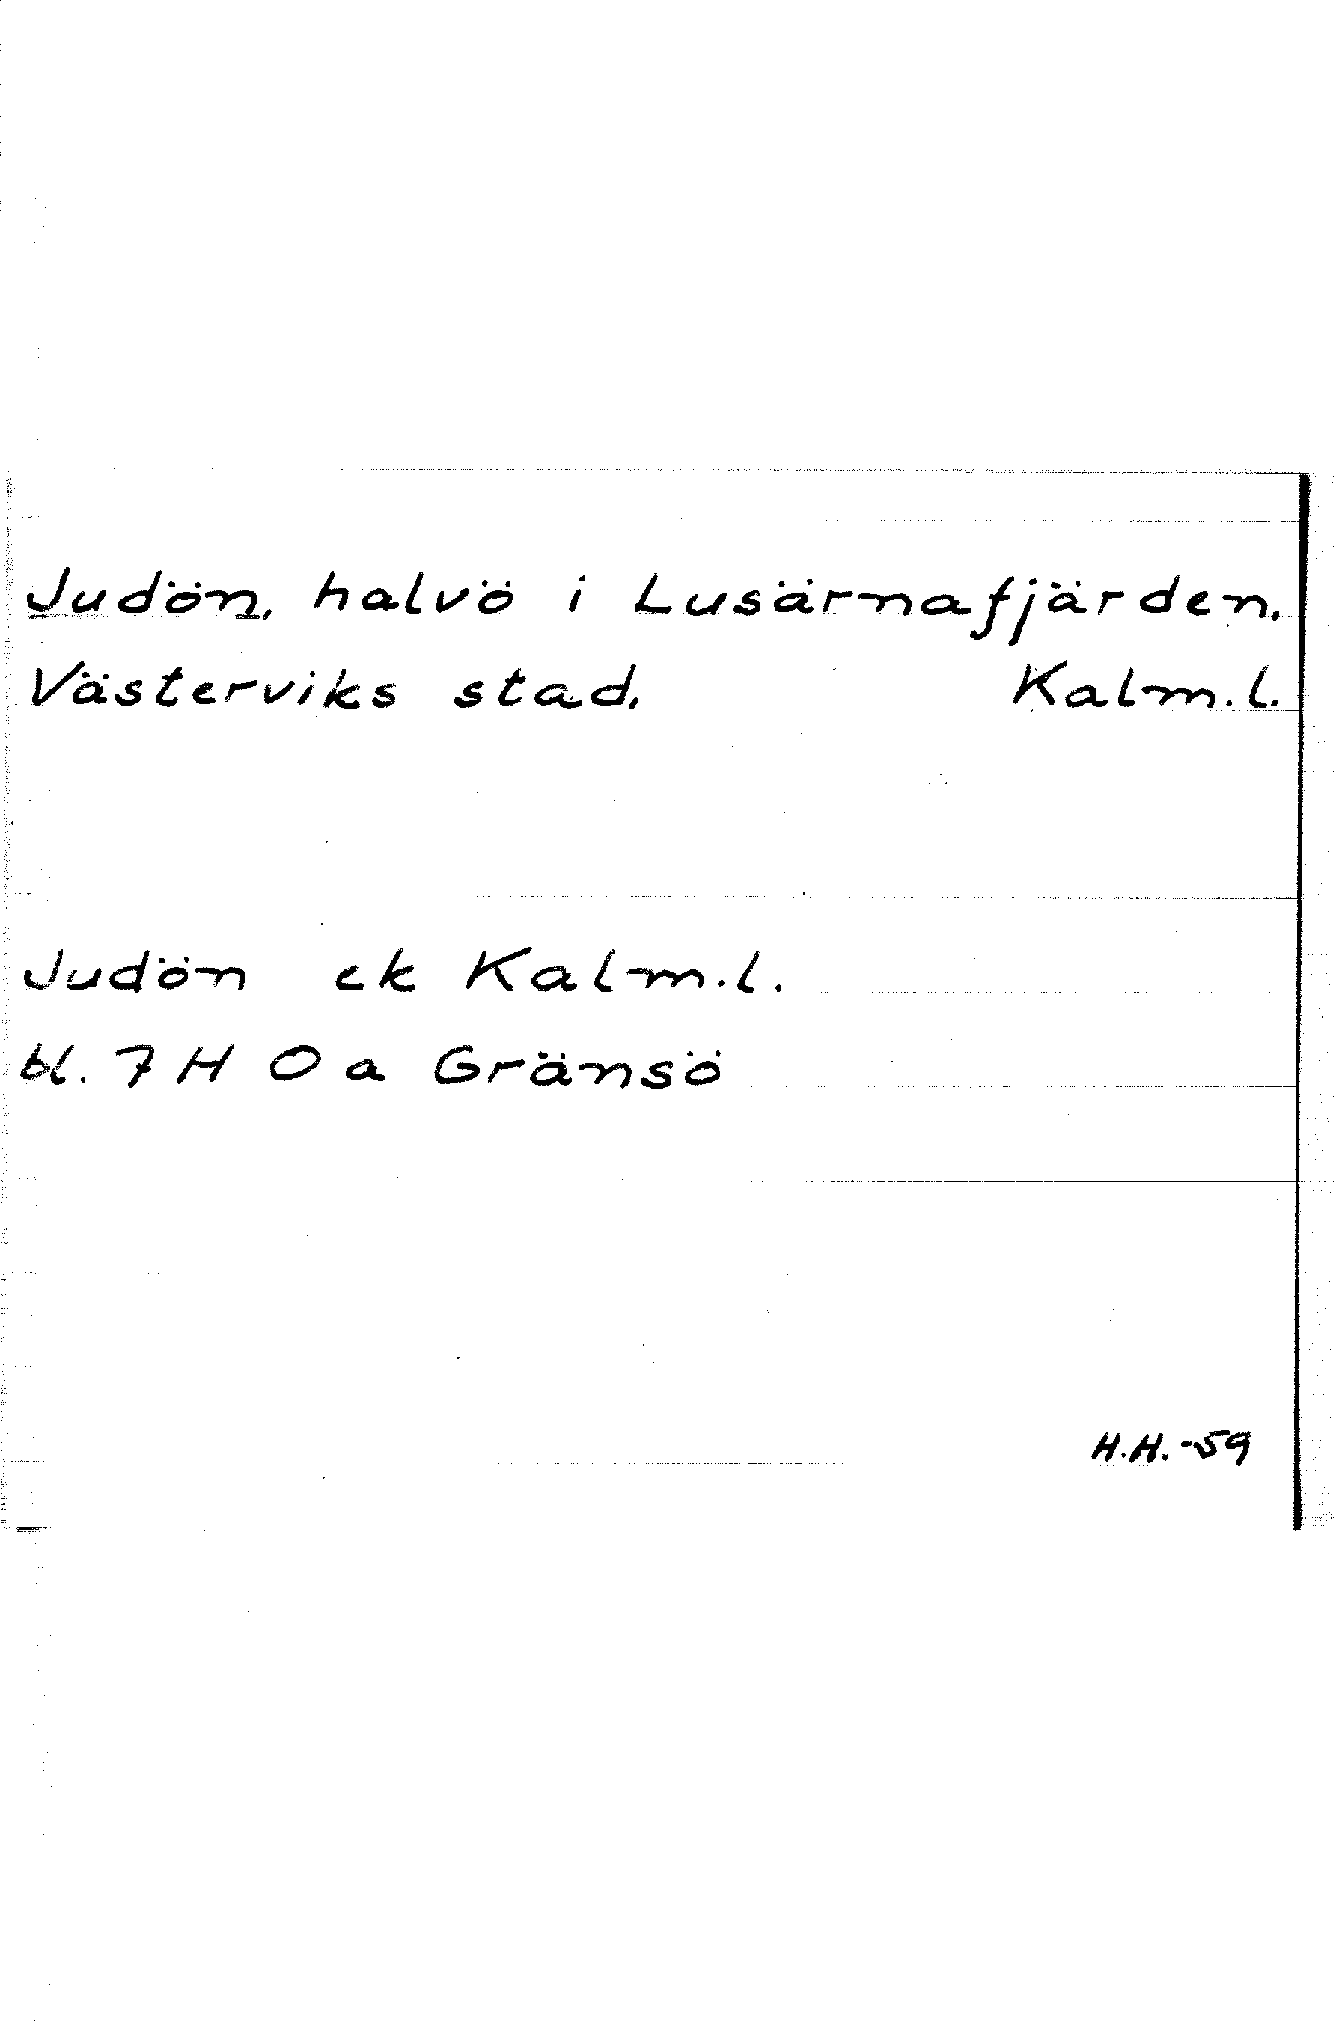 Judön, halvö i Lusärnafjärden.
Västerviks stad. Kalm.l.
Judön ek Kalm.l.
bl. 7 H O a Gränsö
H.H.-59